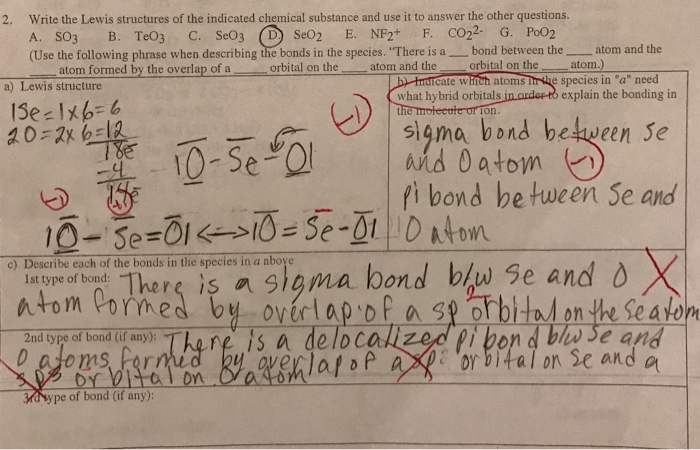 2. Write the Lewis structures of the indicated chemical substance and use it to answer the other questions.
A. SO3 B. TeO3 C. SeO3 D. SeO2 E. NF2+ F. CO2^2- G. PoO2
(Use the following phrase when describing the bonds in the species. "There is a ___ bond between the ___ atom and the
___ atom formed by the overlap of a ___ orbital on the ___ atom and the ___ orbital on the ___ atom.)
a) Lewis structure
b) Indicate which atoms in the species in "a" need
what hybrid orbitals in order to explain the bonding in
the molecule or ion.
1Se=1x6=6
2O=2x6=12
18e
-4
14e
|O-Se-O|
-1
-1
|O-Se=O|<->|O=Se-O|
sigma bond between Se
and O atom -1
Pi bond between Se and
O atom
c) Describe each of the bonds in the species in a above
1st type of bond: There is a sigma bond b/w Se and O X
atom formed by overlap of a sp2 orbital on the Se atom
2nd type of bond (if any): There is a delocalized pi bond b/w Se and
O atoms formed by overlap of a sp2 orbital on Se and a
orbital on O atom
3rd type of bond (if any):